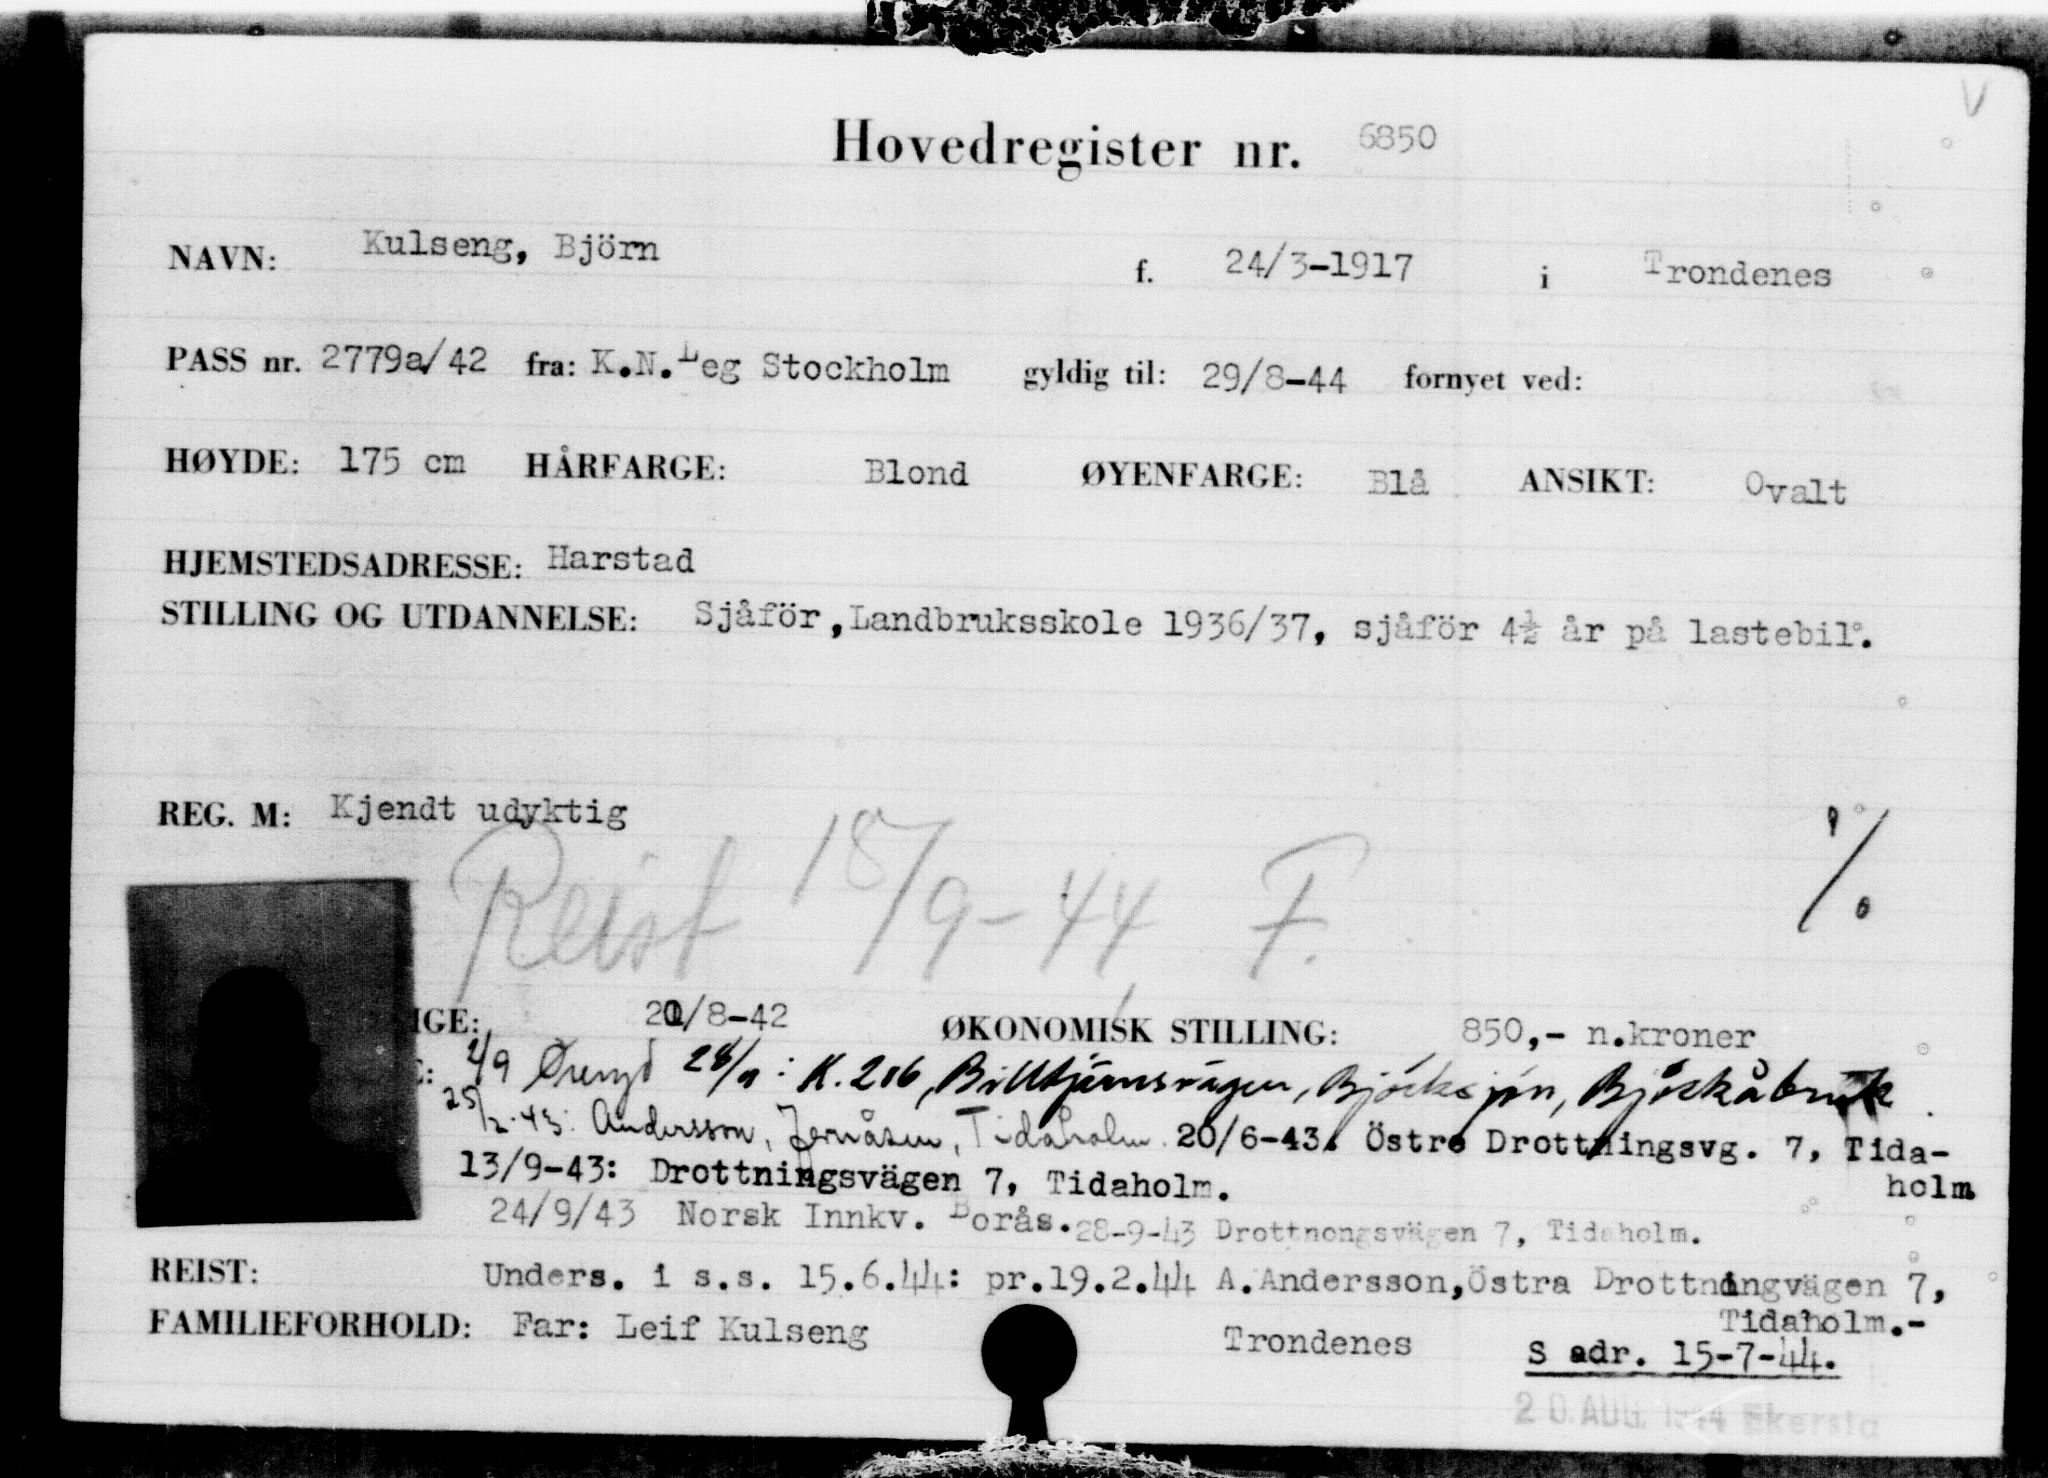 V
Hovedregister nr. 6850
NAVN: Kulseng, Björn f. 24/3-1917 i Trondenes
PASS nr. 2779a/42 fra: K.N.Leg Stockholm gyldig til: 29/8-44 fornyet ved:
HØYDE: 175 cm HÅRFARGE: Blond ØYENFARGE: Blå ANSIKT: Ovalt
HJEMSTEDSADRESSE: Harstad
STILLING OG UTDANNELSE: Sjåför, Landbruksskole 1936/37, sjåför 4½ år på lastebil.
REG. M: Kjendt udyktig
Reist 18/9-44 F.
IGE: /8-42 ØKONOMISK STILLING: 850,- n.kroner
: 2/9 28/ : K. 206, Billtjärnsvägen, Bjöcksjön, Björkåbruk
25/2.43: Andersson, Jernåsen, Tidaholm. 20/6-43. Östre Drottningsvg. 7, Tida-
holm
13/9-43: Drottningsvägen 7, Tidaholm.
24/9/43 Norsk Innkv. Borås. 28-9-43 Drottnongsvägen 7, Tidaholm.
REIST: Unders. i s.s. 15.6.44: pr.19.2.44 A.Andersson, Östra Drottningvägen 7,
Tidaholm.-
FAMILIEFORHOLD: Far: Leif Kulseng Trondenes
S adr. 15-7-44.
20. AUG. 1944 Ekersta